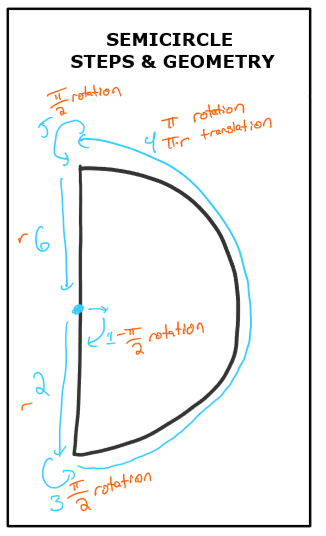 SEMICIRCLE
STEPS & GEOMETRY
π/2 rotation
5
4 π rotation
π·r translation
r 6
1 -π/2 rotation
r 2
3 π/2 rotation